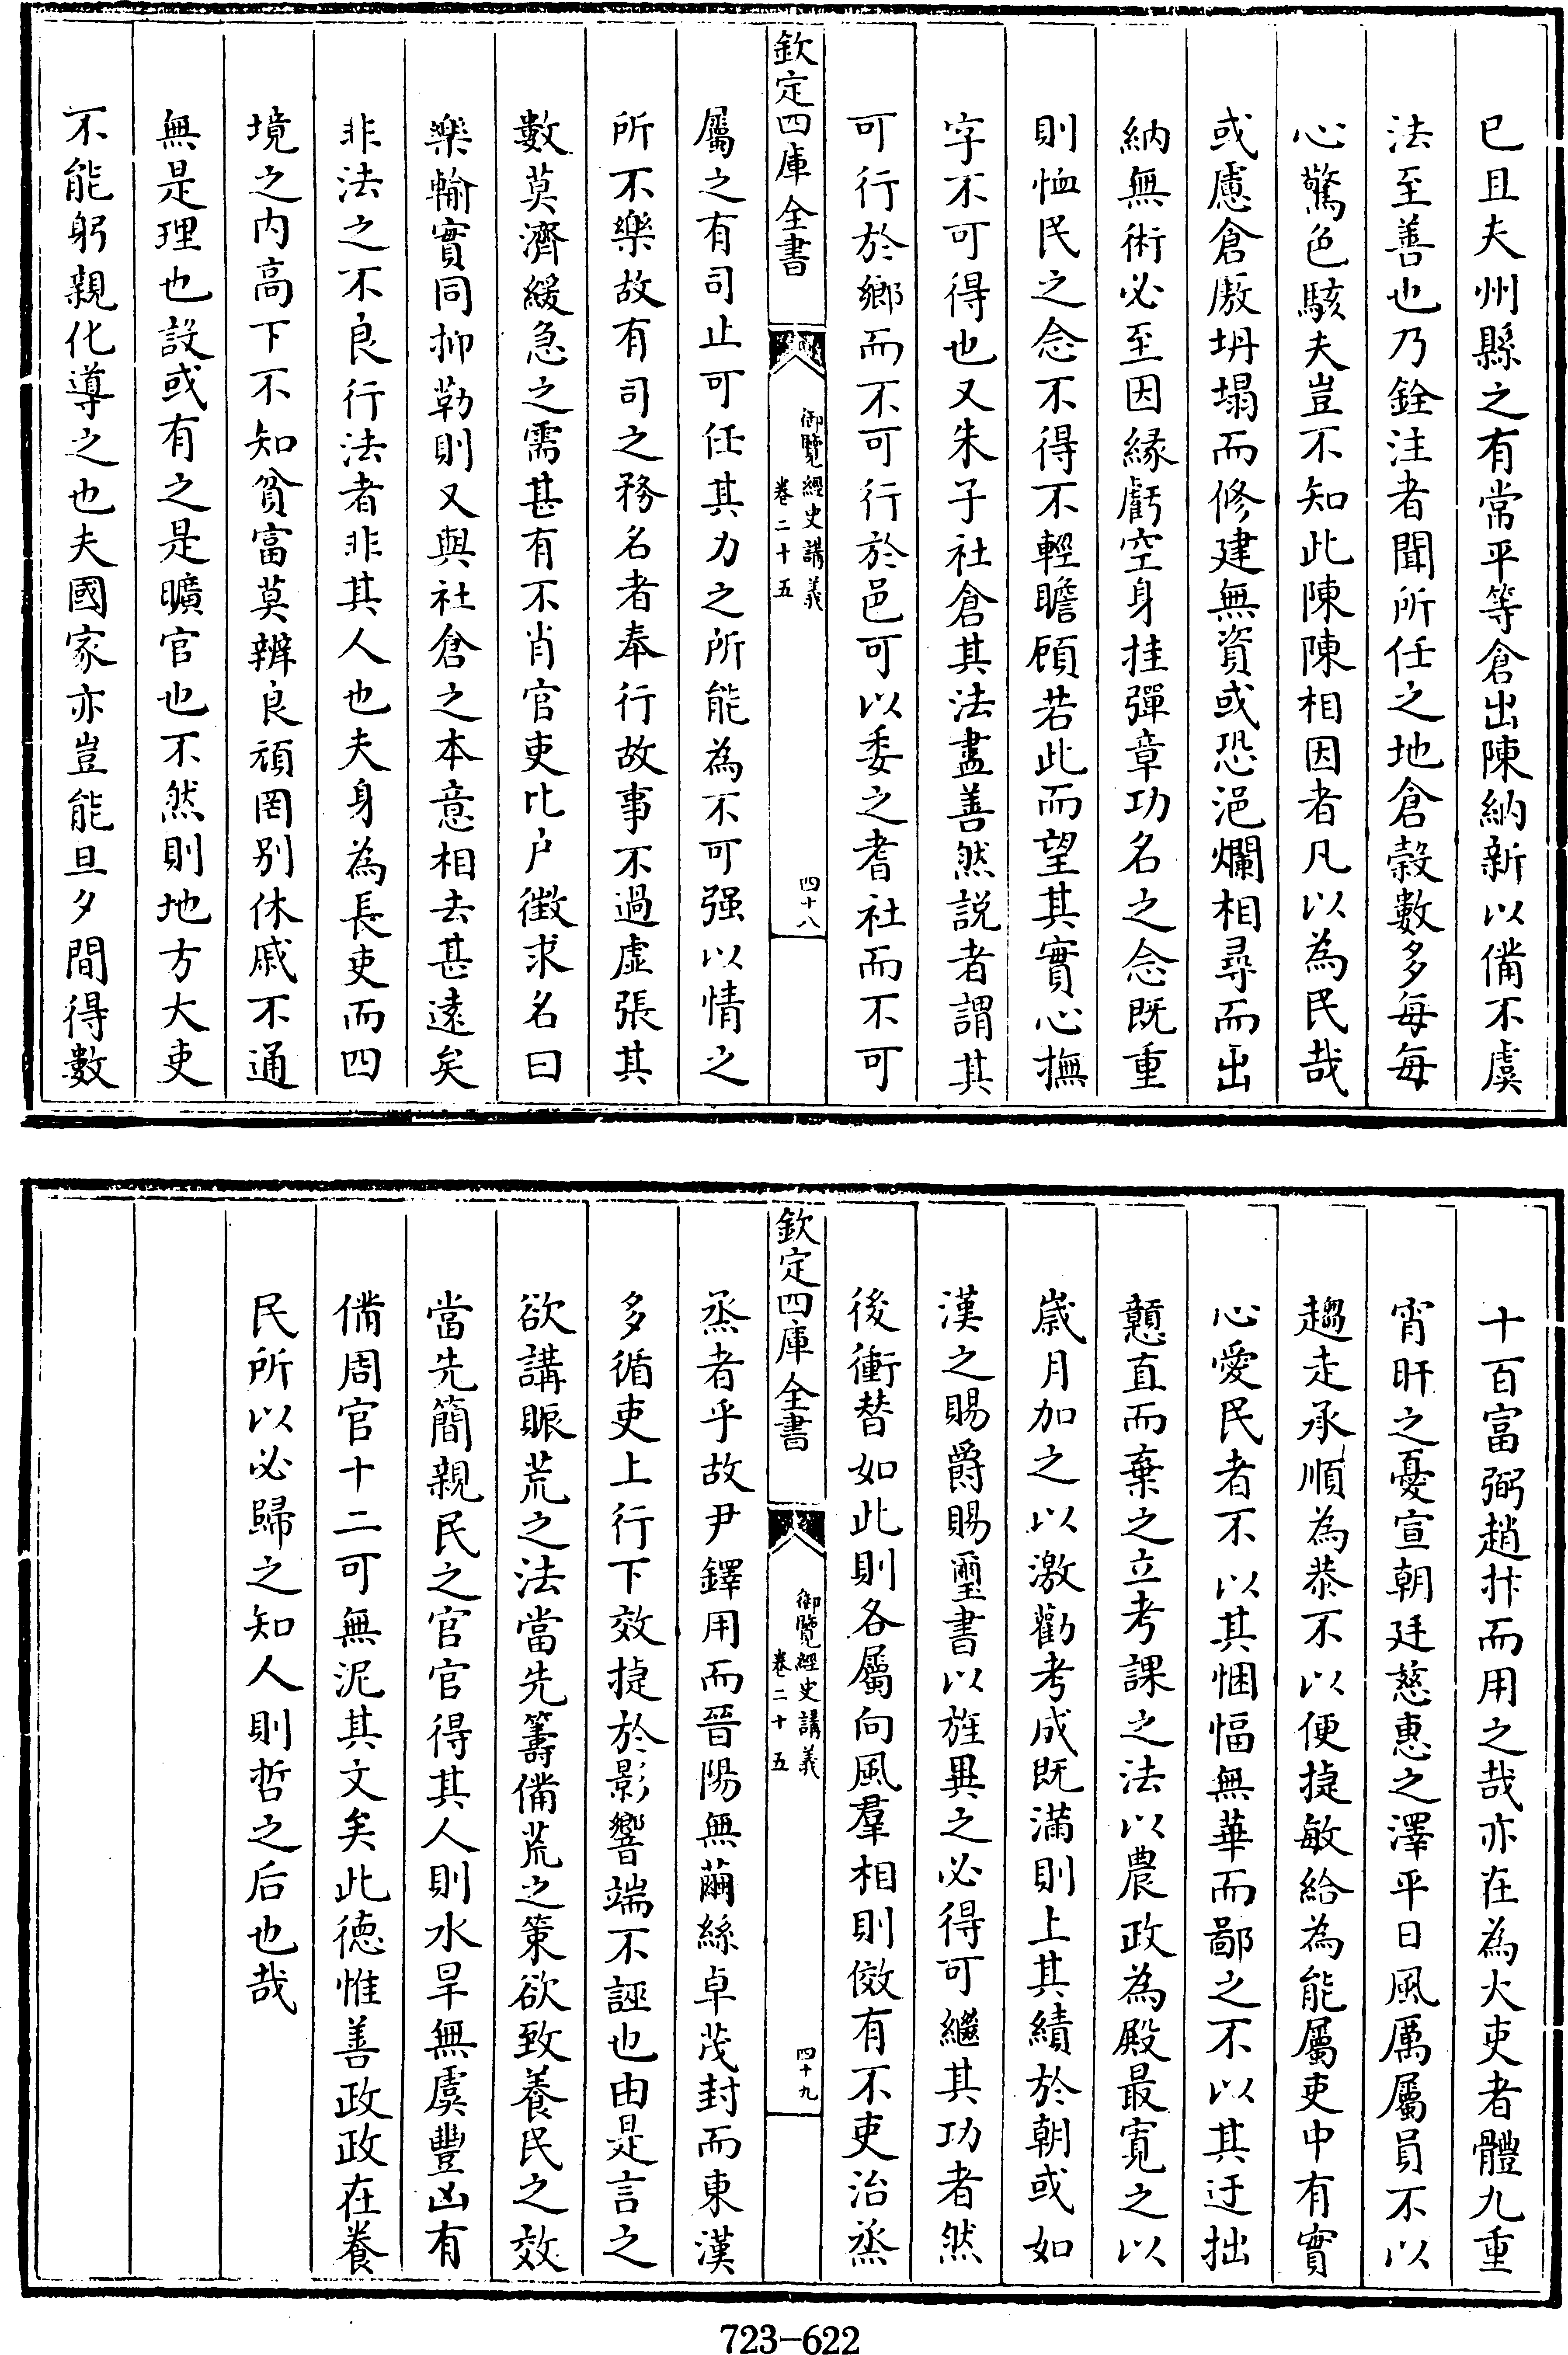 已且夫州縣之有常平等倉出陳納新以備不虞
法至善也乃銓注者聞所任之地倉榖數多每每
心驚色駭夫豈不知此陳陳相因者凡以為民哉
或慮倉厫坍塌而修建無資或恐浥爛相尋而出
納無術必至因縁虧空身挂彈章功名之念既重
則恤民之念不得不輕瞻顧若此而望其實心撫
字不可得也又朱子社倉其法盡善然説者謂其
可行於鄉而不可行於邑可以委之耆社而不可
欽定四庫全書
御覽經史講義
卷二十五
四十八
屬之有司止可任其力之所能為不可强以情之
所不樂故有司之務名者奉行故事不過虛張其
數莫濟緩急之需甚有不肖官吏比户徵求名曰
樂輸實同抑勒則又與社倉之本意相去甚遠矣
非法之不良行法者非其人也夫身為長吏而四
境之内高下不知貧富莫辨良頑罔别休戚不通
無是理也設或有之是曠官也不然則地方大吏
不能躬親化導之也夫國家亦豈能旦夕間得數
十百富弼趙抃而用之哉亦在為大吏者體九重
宵旰之憂宣朝廷慈惠之澤平日風厲屬員不以
趨走承順為恭不以便捷敏給為能屬吏中有實
心愛民者不以其悃愊無華而鄙之不以其迂拙
戇直而棄之立考課之法以農政為殿最寛之以
嵗月加之以激勸考成既滿則上其績於朝或如
漢之賜爵賜璽書以旌異之必得可繼其功者然
後衝替如此則各屬向風羣相則傚有不吏治烝
欽定四庫全書
御覽經史講義
卷二十五
四十九
烝者乎故尹鐸用而晉陽無繭絲卓茂封而東漢
多循吏上行下效捷於影響端不誣也由是言之
欲講賑荒之法當先籌備荒之策欲致養民之效
當先簡親民之官官得其人則水旱無虞豐凶有
備周官十二可無泥其文矣此德惟善政政在養
民所以必歸之知人則哲之后也哉
723-622